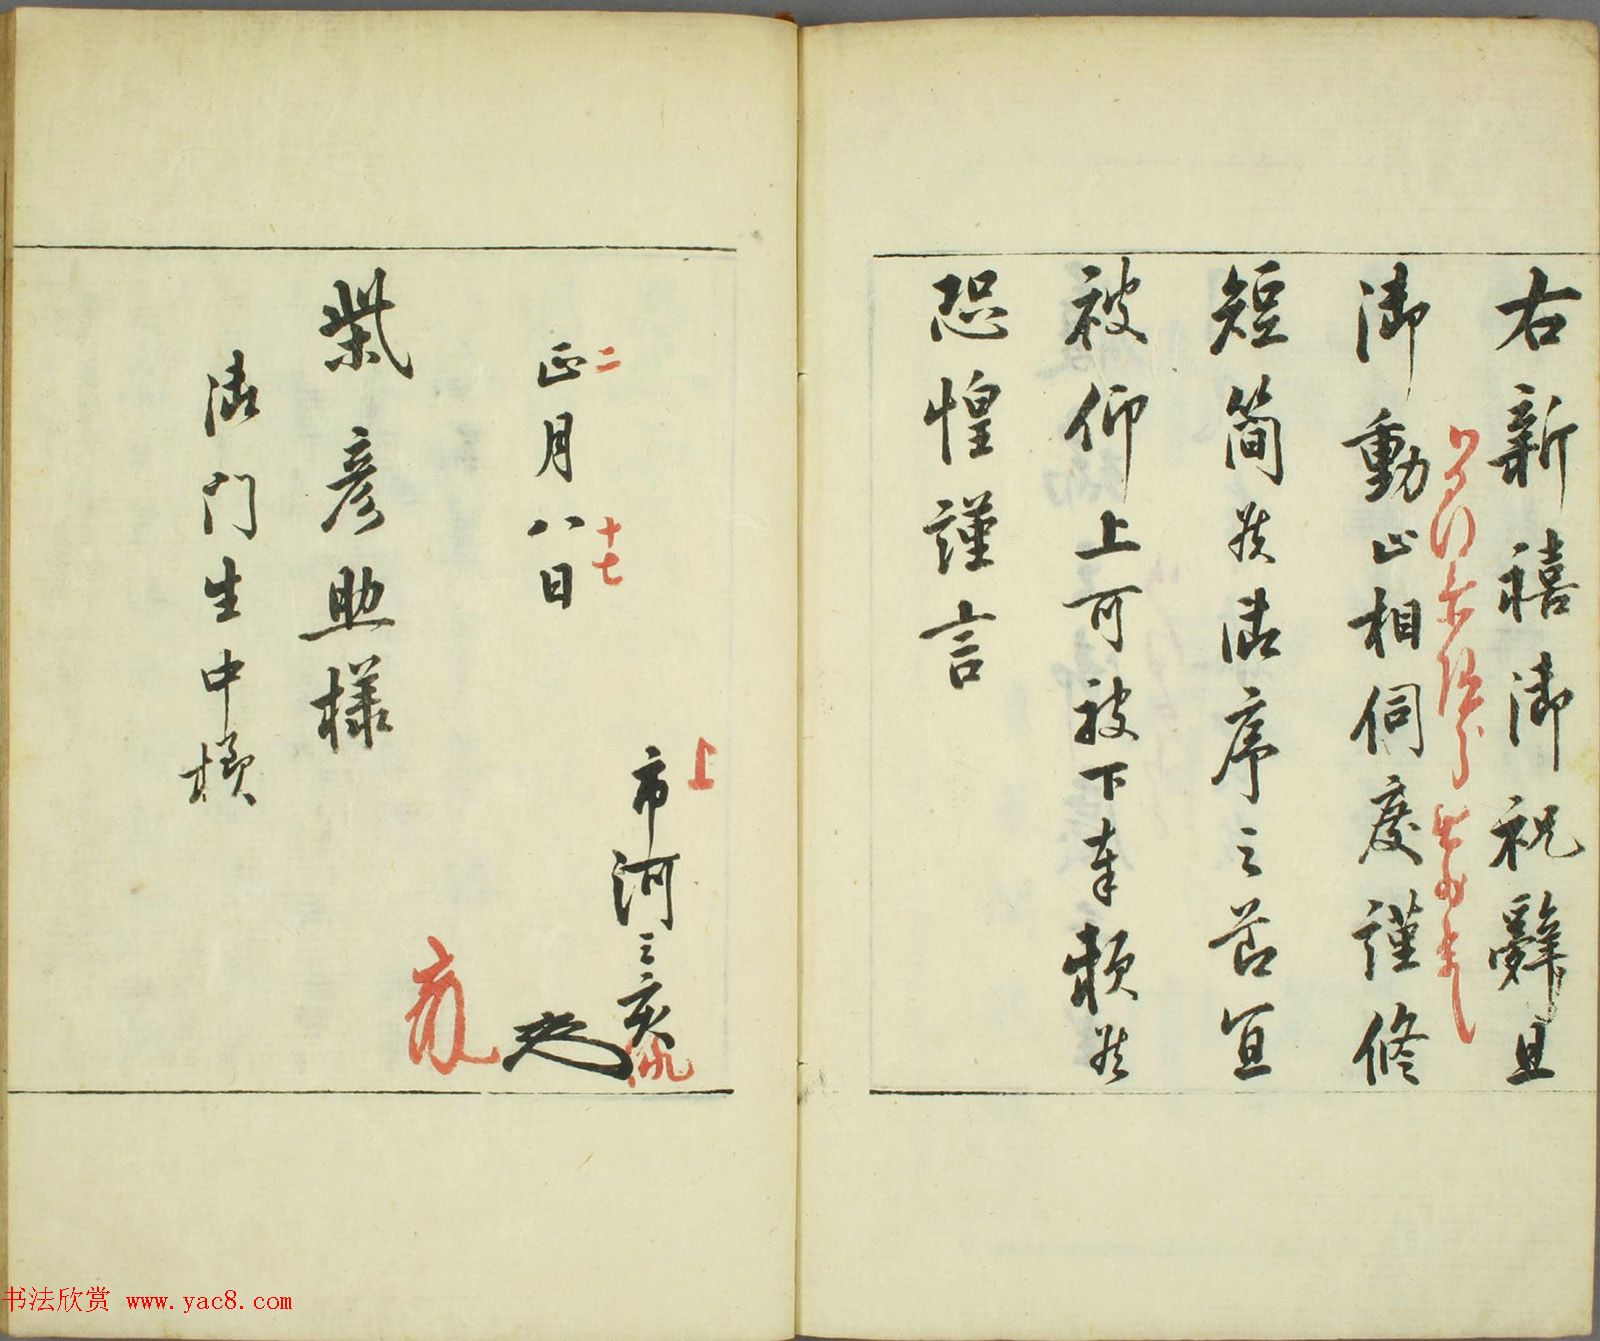 右新禧御祝辞且
御動止相伺度謹修
短简候御序之節宜
被仰上可被下奉頼候
恐惶謹言
二
正月八日
十七
上
市河三亥
柴彦助様
御門生中様
书法欣赏 www.yac8.com